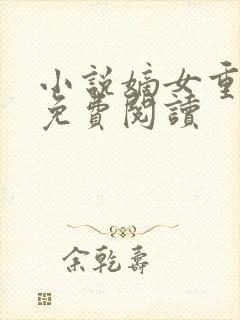 小說嫡女重
免費閱讀
余乾壽